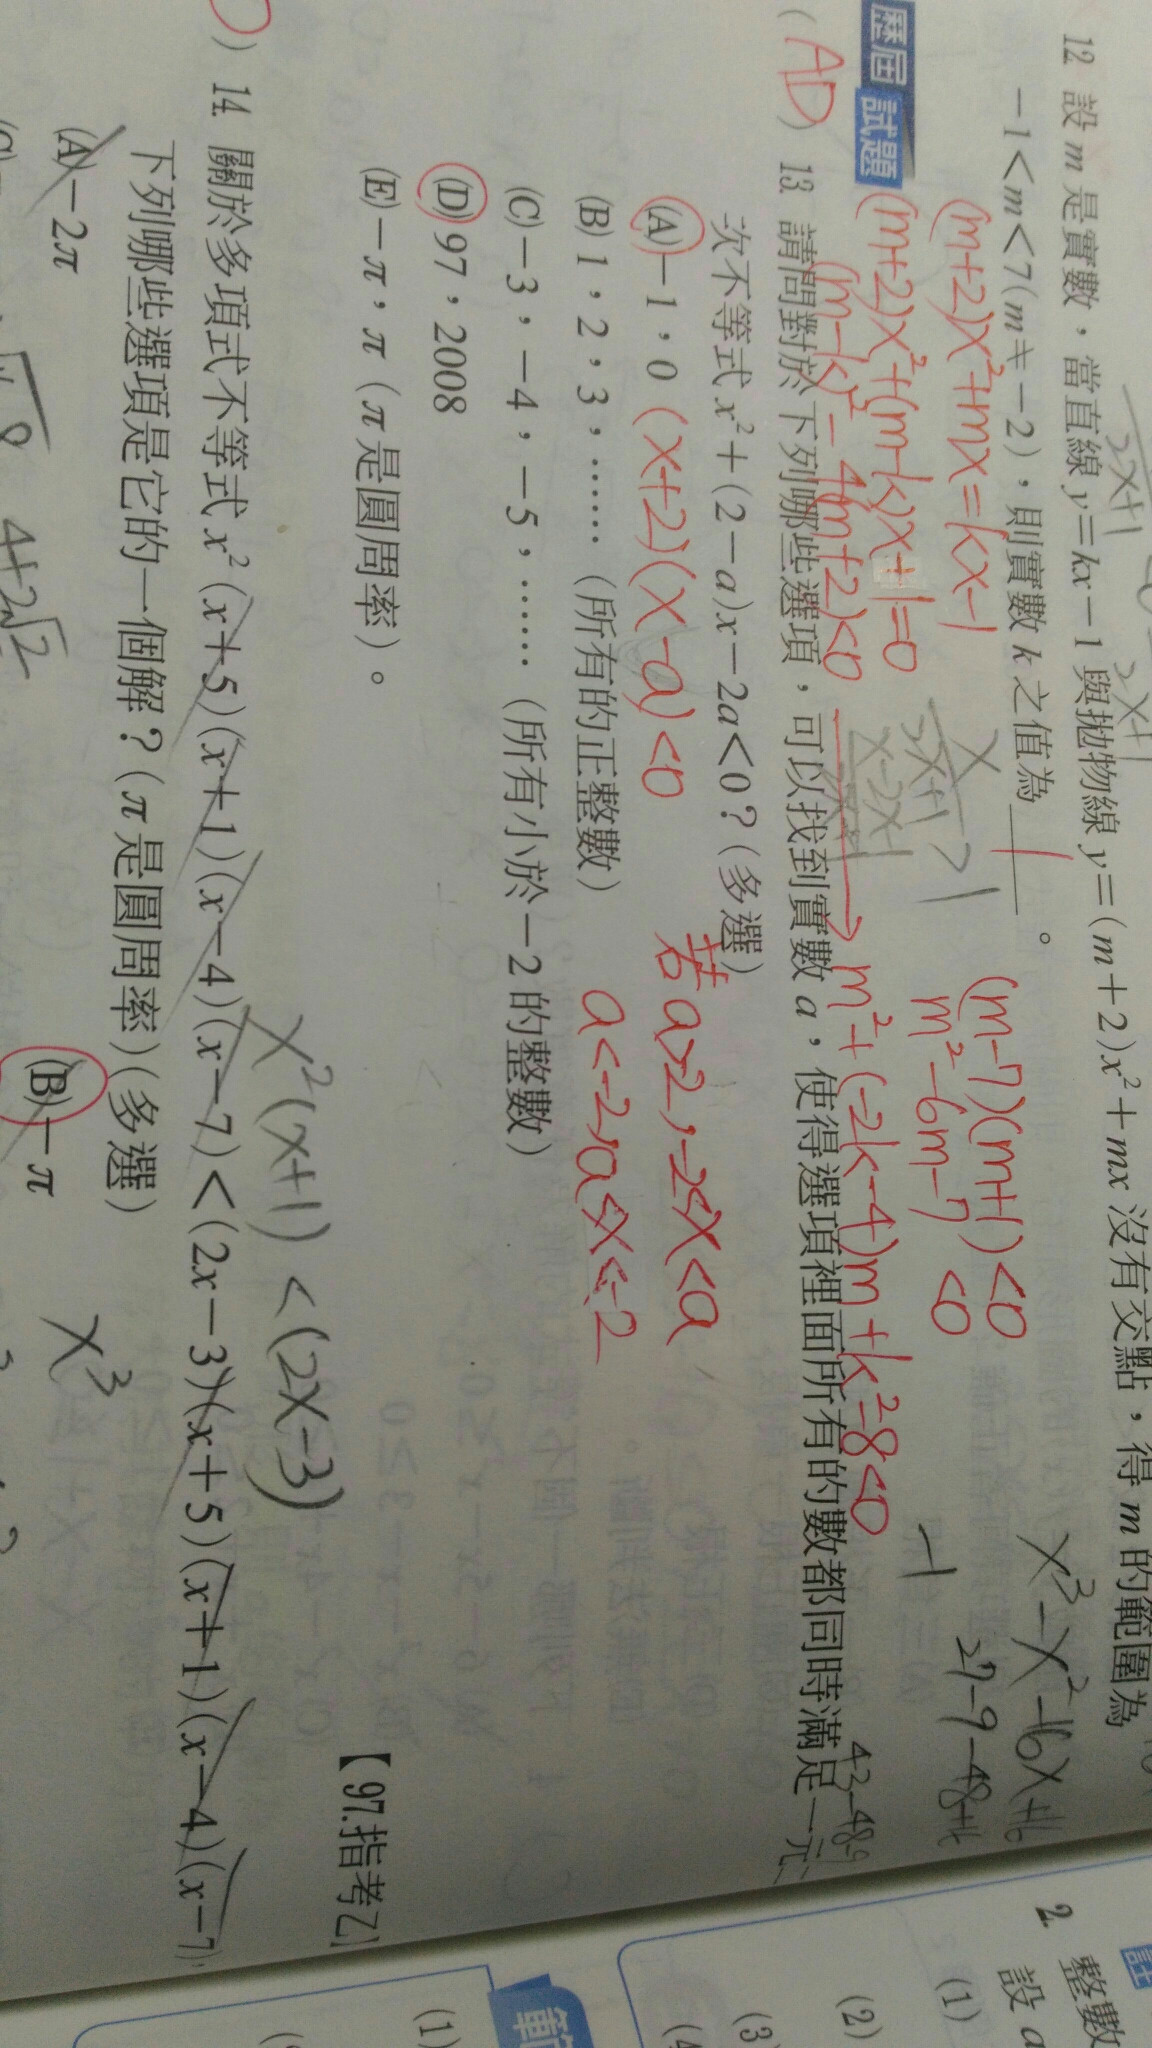 12 設 m 是實數，當直線 y＝kx－1 與拋物線 y＝(m＋2)x²＋mx 沒有交點，得 m 的範圍為
－1＜m＜7(m≠－2)，則實數 k 之值為 1 。
(m+2)x²+mx=kx-1
(m+2)x²+(m-k)x+1=0
(m-k)²-4(m+2)<0
m²+(-2k-4)m+k²-8<0
(m-7)(m+1)<0
m²-6m-7<0
x³-x²-16x+16
27-9-48+16
-1
2x+1
歷屆試題
(AD) 13 請問對於下列哪些選項，可以找到實數 a，使得選項裡面所有的數都同時滿足一元
次不等式 x²＋(2－a)x－2a＜0？(多選)
(A)－1，0
(x+2)(x-a)<0
若a>-2,-2<x<a
a<-2,a<x<-2
(B) 1，2，3，……（所有的正整數）
(C)－3，－4，－5，……（所有小於－2 的整數）
(D) 97，2008
(E)－π，π（π 是圓周率）。
【97.指考乙】
x²(x+1)<(2x-3)
) 14 關於多項式不等式 x²(x＋5)(x＋1)(x－4)(x－7)＜(2x－3)(x＋5)(x＋1)(x－4)(x－7)，
下列哪些選項是它的一個解？(π 是圓周率)(多選)
(A)－2π
(B)－π
x³
4+2√2
2 整數
設 a
(1)
(2)
(3)
(1)